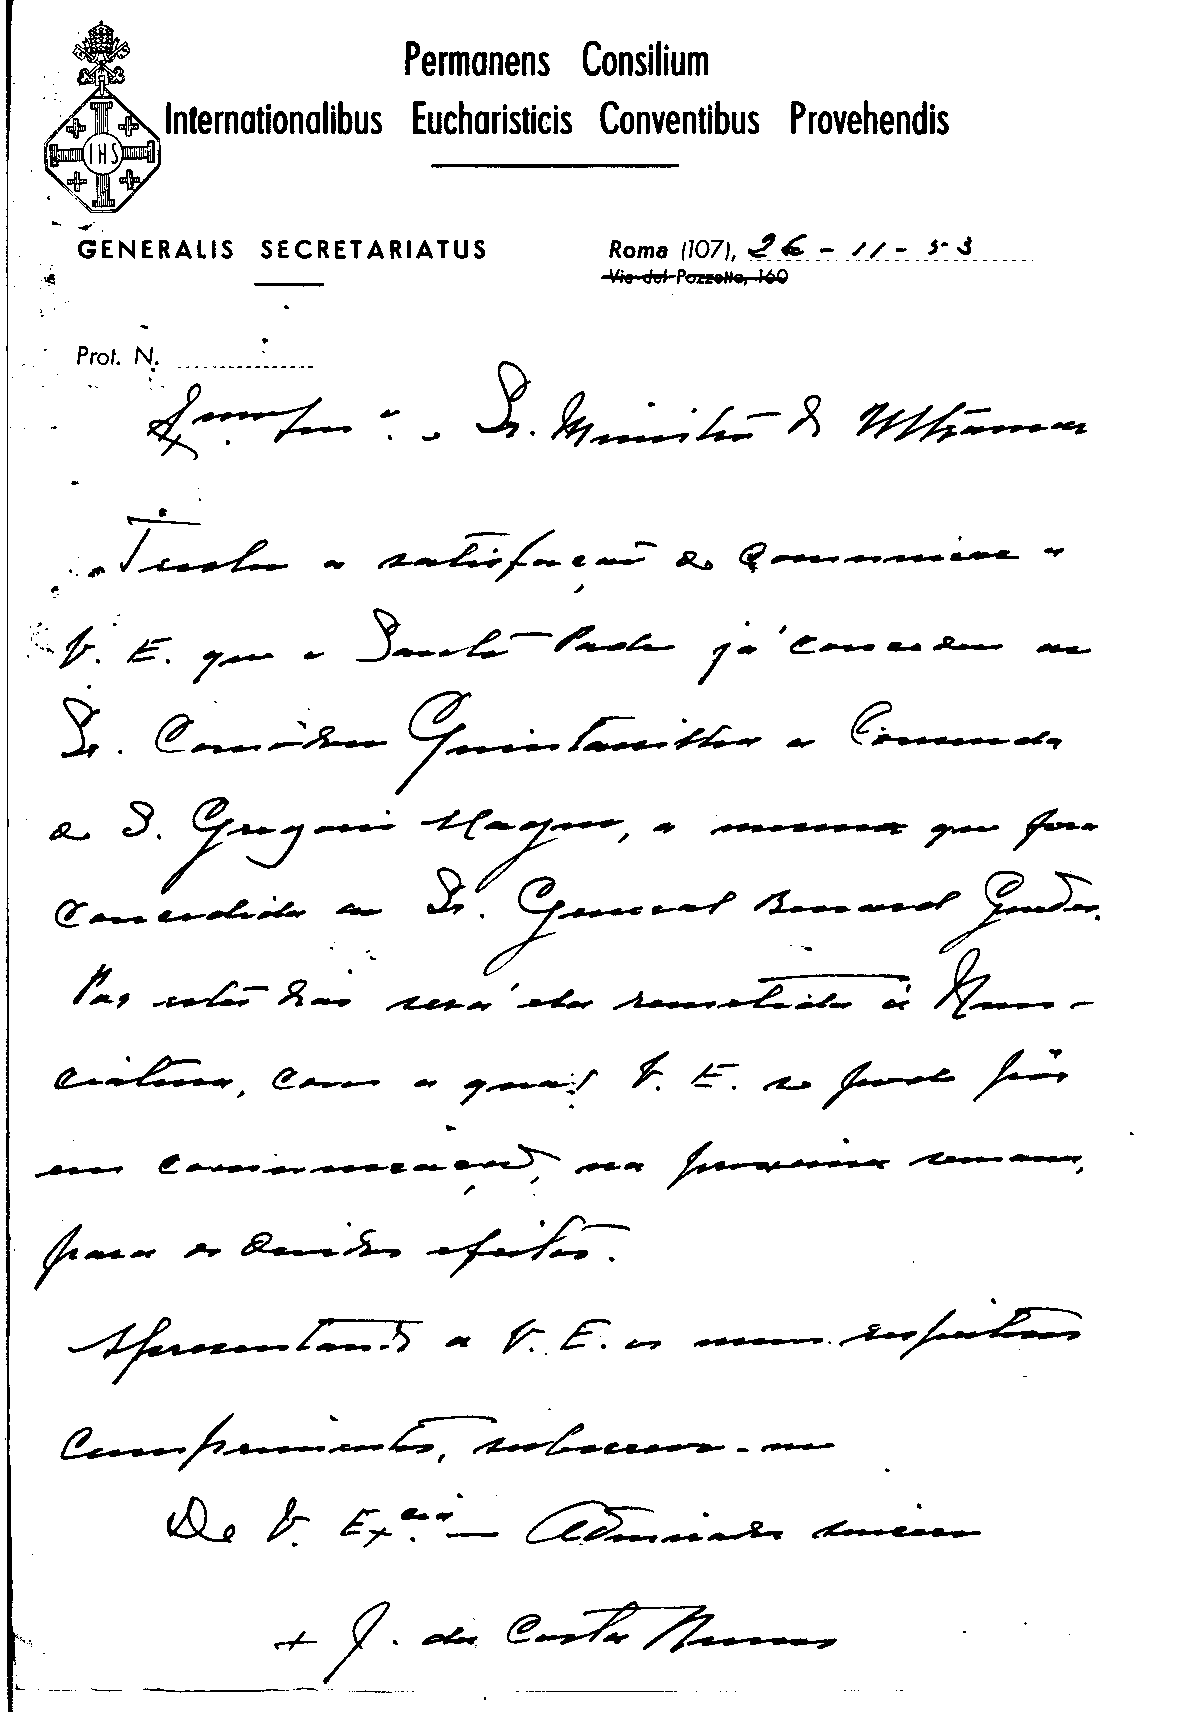 Permanens Consilium
Internationalibus Eucharisticis Conventibus Provehendis
IHS
GENERALIS SECRETARIATUS
Roma (107), 26-11-53
Via del Pozzetto, 160
Prot. N.
Sr. Ministro do Ultramar
Tenho a satisfação de comunicar a
V. E. que o Santo Padre já concedeu ao
Sr. Comodoro Quintanilha a Comenda
de S. Gregorio Magno, a mesma que fora
concedida ao Sr. General Bernard Guedes.
Por estes dias será ela remetida à Nun-
ciatura, com a qual V. E. se pode pôr
em comunicação, na proxima semana,
para os devidos efeitos.
Apresentando a V. E. os meus respeitosos
cumprimentos, subscrevo-me
De V. Ex.cia — Admirador sincero
+ J. da Costa Nunes